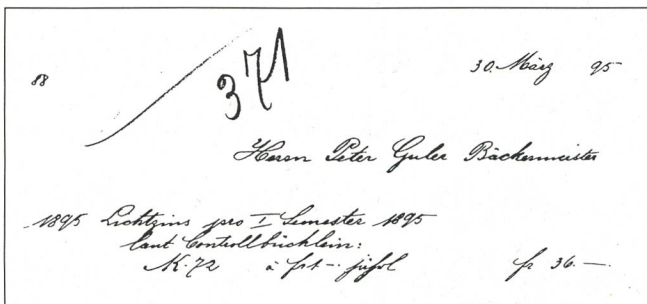 88
371
30. März 95
Herrn Peter Guler Bäckermeister
1895 Lichtzins pro I Semester 1895
laut Controllbüchlein:
N. 72 à frk 1.- jährl fr 36.—